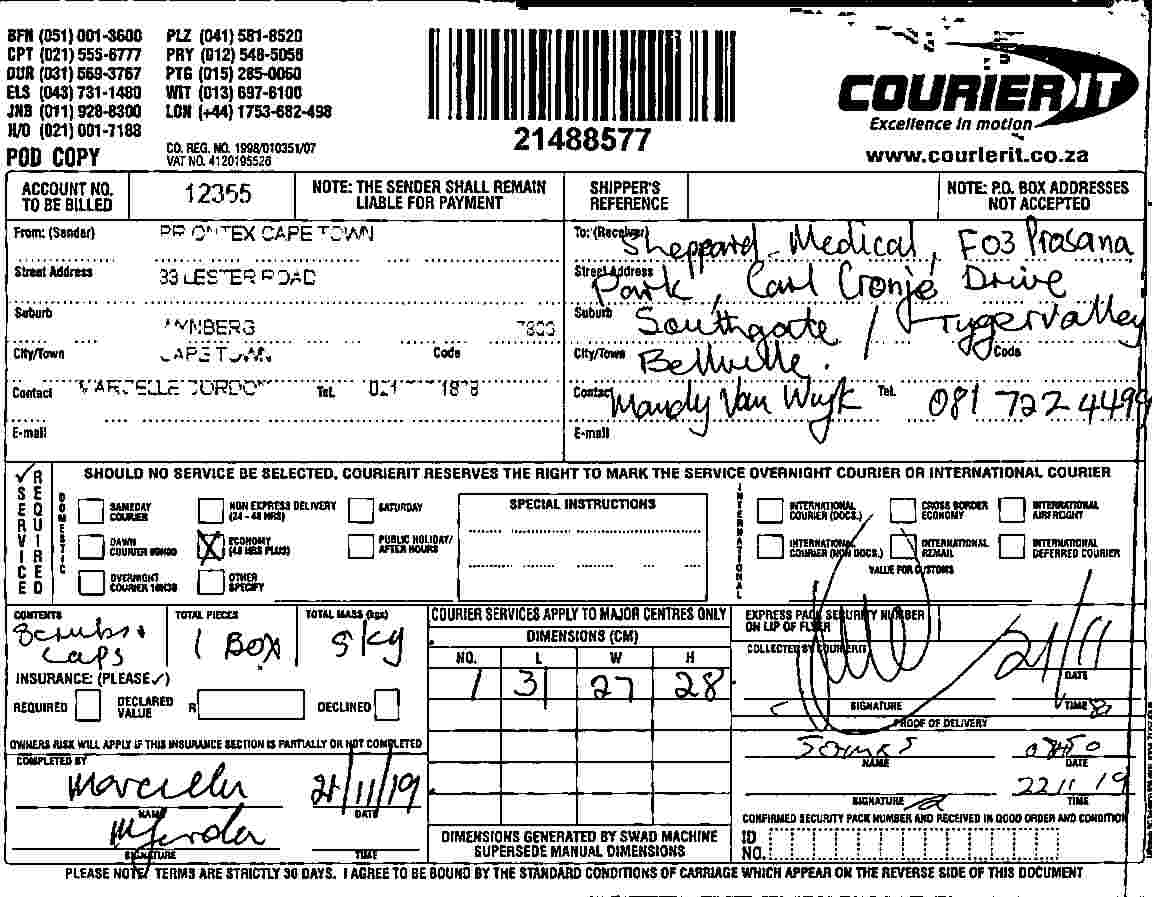 BFN (051) 001-3600 PLZ (041) 581-8520
CPT (021) 555-6777 PRY (012) 548-5058
DUR (031) 569-3767 PTG (015) 285-0060
ELS (043) 731-1480 WIT (013) 697-6100
JNB (011) 928-8300 LON (+44) 1753-682-498
H/O (021) 001-7188
POD COPY
CO. REG. NO. 1998/010351/07
VAT NO. 4120195526
21488577
COURIER IT
Excellence in motion
www.courierit.co.za
ACCOUNT NO. TO BE BILLED 12355
NOTE: THE SENDER SHALL REMAIN LIABLE FOR PAYMENT
SHIPPER'S REFERENCE
NOTE: P.O. BOX ADDRESSES NOT ACCEPTED
From: (Sender) PRIONTEX CAPE TOWN
Street Address 33 LESTER ROAD
Suburb WYNBERG 7800
City/Town CAPE TOWN Code
Contact MARCELLE GORDON Tel. 021 1878
E-mail
To: (Receiver) Sheppard Medical, F03 Prasana
Street Address Park, Carl Cronje Drive
Suburb Southgate / Tygervalley
City/Town Bellville. Code
Contact Mandy Van Wyk Tel. 081 722 4499
E-mail
SERVICE REQUIRED
SHOULD NO SERVICE BE SELECTED, COURIERIT RESERVES THE RIGHT TO MARK THE SERVICE OVERNIGHT COURIER OR INTERNATIONAL COURIER
DOMESTIC
SAMEDAY COURIER
NON EXPRESS DELIVERY (24 - 48 HRS)
SATURDAY
DAWN COURIER 09H00
X ECONOMY (48 HRS PLUS)
PUBLIC HOLIDAY/ AFTER HOURS
OVERNIGHT COURIER 10H30
OTHER SPECIFY
SPECIAL INSTRUCTIONS
INTERNATIONAL
INTERNATIONAL COURIER (DOCS.)
CROSS BORDER ECONOMY
INTERNATIONAL AIRFREIGHT
INTERNATIONAL COURIER (NON DOCS.)
INTERNATIONAL REMAIL
INTERNATIONAL DEFERRED COURIER
VALUE FOR CUSTOMS
CONTENTS Scrubs + caps
TOTAL PIECES 1 BOX
TOTAL MASS (kgs) 5kg
INSURANCE: (PLEASE ✓)
REQUIRED DECLARED VALUE R DECLINED
OWNERS RISK WILL APPLY IF THIS INSURANCE SECTION IS PARTIALLY OR NOT COMPLETED
COMPLETED BY
Marcelle 21/11/19
NAME DATE
SIGNATURE TIME
COURIER SERVICES APPLY TO MAJOR CENTRES ONLY
DIMENSIONS (CM)
NO. L W H
1 31 27 28
DIMENSIONS GENERATED BY SWAD MACHINE SUPERSEDE MANUAL DIMENSIONS
EXPRESS PACK SECURITY NUMBER ON LIP OF FLYER
COLLECTED BY COURIERIT
21/11
DATE
SIGNATURE TIME
PROOF OF DELIVERY
NAME DATE
22 11 19
SIGNATURE TIME
CONFIRMED SECURITY PACK NUMBER AND RECEIVED IN GOOD ORDER AND CONDITION
ID NO.
PLEASE NOTE/ TERMS ARE STRICTLY 30 DAYS. I AGREE TO BE BOUND BY THE STANDARD CONDITIONS OF CARRIAGE WHICH APPEAR ON THE REVERSE SIDE OF THIS DOCUMENT